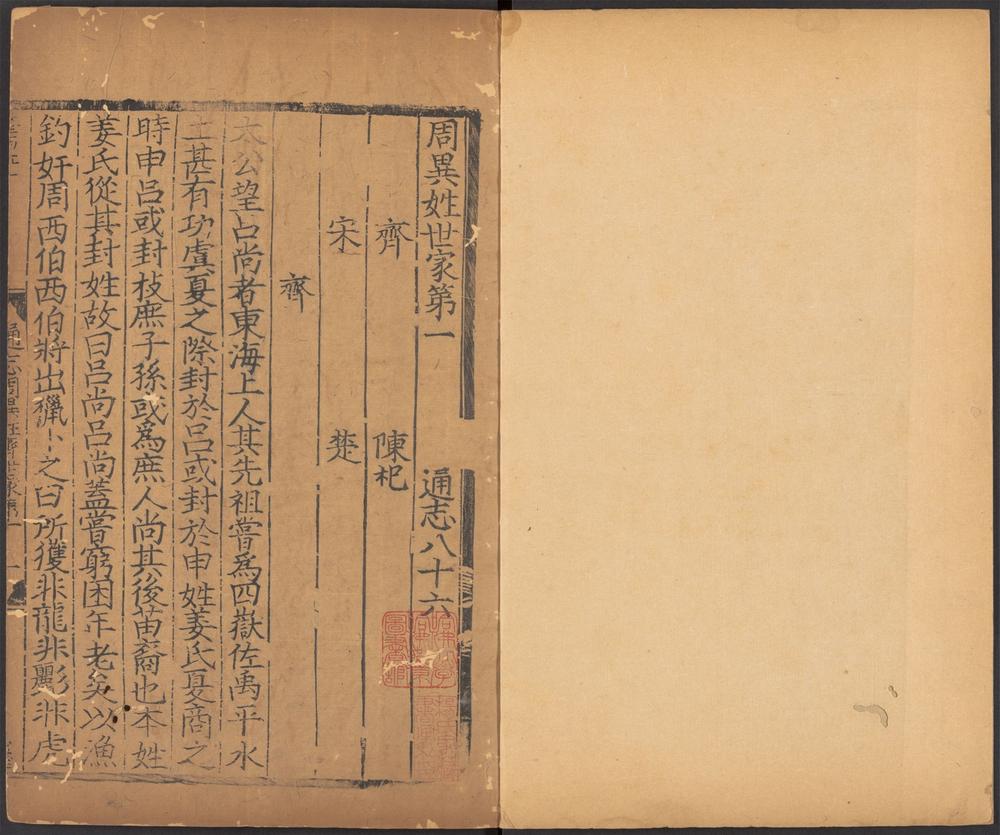 周異姓世家第一　通志八十六
齊　陳杞
宋　楚
齊
太公望呂尚者東海上人其先祖嘗爲四嶽佐禹平水
土甚有功虞夏之際封於呂或封於申姓姜氏夏商之
時申呂或封枝庶子孫或爲庶人尚其後苗裔也本姓
姜氏從其封姓故曰呂尚呂尚蓋嘗窮困年老矣以漁
釣奸周西伯西伯將出獵卜之曰所獲非龍非彲非虎